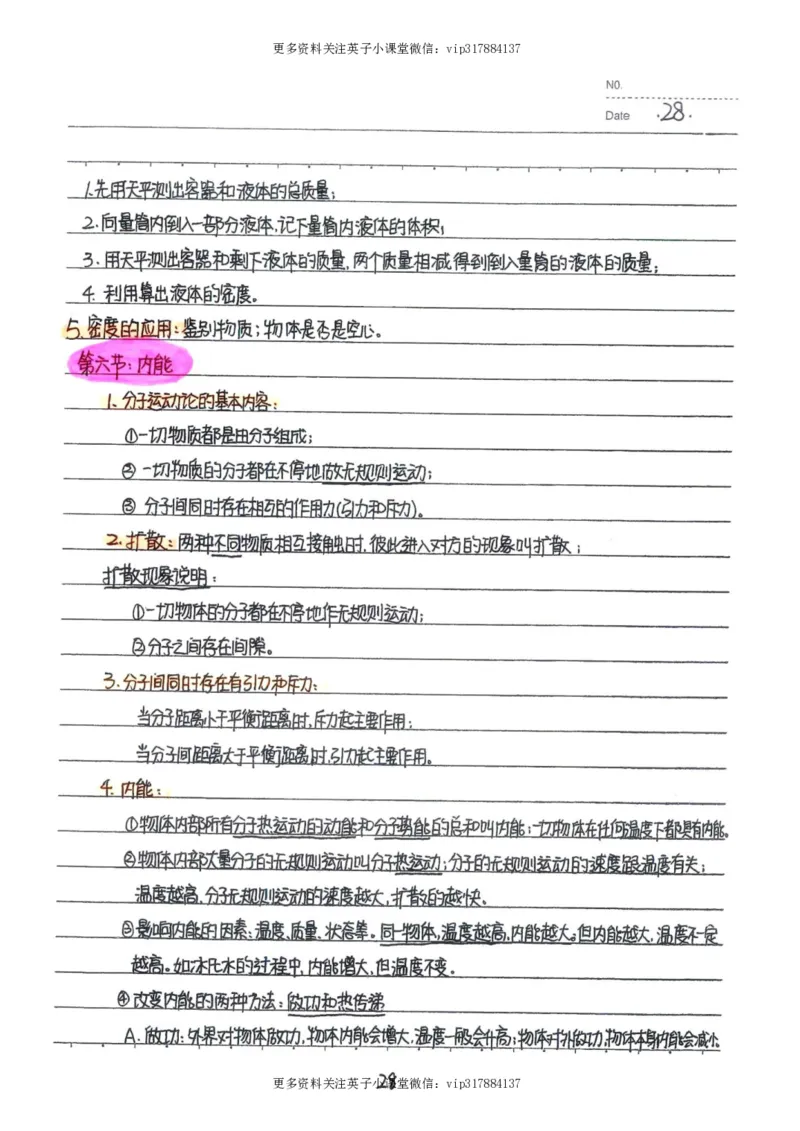 更多资料关注英子小课堂微信：vip317884137
NO.
Date ·28·
1.先用天平测出容器和液体的总质量；
2.向量筒内倒入一部分液体,记下量筒内液体的体积；
3.用天平测出容器和剩下液体的质量,两个质量相减得到倒入量筒的液体的质量；
4.利用算出液体的密度。
5.密度的应用：鉴别物质；物体是否是空心。
第六节：内能
1.分子运动论的基本内容：
①一切物质都是由分子组成；
②一切物质的分子都在不停地做无规则运动；
③ 分子间同时存在相互的作用力(引力和斥力)。
2.扩散：两种不同物质相互接触时,彼此进入对方的现象叫扩散；
扩散现象说明：
①一切物体的分子都在不停地作无规则运动；
②分子之间存在间隙。
3.分子间同时存在有引力和斥力：
当分子距离小于平衡距离时,斥力起主要作用；
当分子间距离大于平衡距离时,引力起主要作用。
4.内能：
①物体内部所有分子热运动的动能和分子势能的总和叫内能；一切物体在任何温度下都具有内能。
②物体内部大量分子的无规则运动叫分子热运动；分子的无规则运动的速度跟温度有关；
温度越高,分子无规则运动的速度越大,扩散的越快。
③影响内能的因素：温度、质量、状态等。同一物体,温度越高,内能越大。但内能越大,温度不一定
越高。如冰化水的过程中,内能增大,但温度不变。
④改变内能的两种方法：做功和热传递
A.做功：外界对物体做功,物体内能会增大,温度一般会升高；物体对外做功,物体本身内能会减小
28
更多资料关注英子小课堂微信：vip317884137